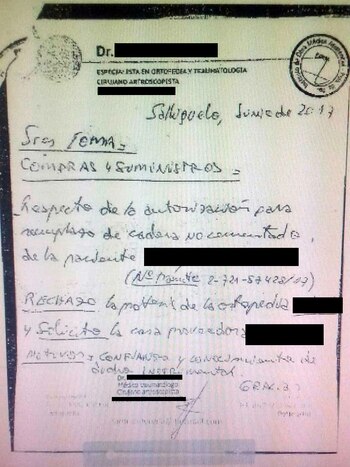 Dr.
ESPECIALISTA EN ORTOPEDIA Y TRAUMATOLOGÍA
CIRUJANO ARTROSCOPISTA
Salliqueló, Junio de 2017
Sres IOMA =
COMPRAS Y SUMINISTROS =
Respecto de la autorización para
reemplazo de cadera no cementada,
de la paciente
(Nº Trámite 2-721-57428/17)
RECHAZO la prótesis de la ortopedia
y Solicito la casa proveedora
MOTIVOS: CONFIANZA y conocimiento de
dicho INSTRUMENTAL
Dr.
Médico traumatólogo
Cirujano artroscopista
GRACIAS